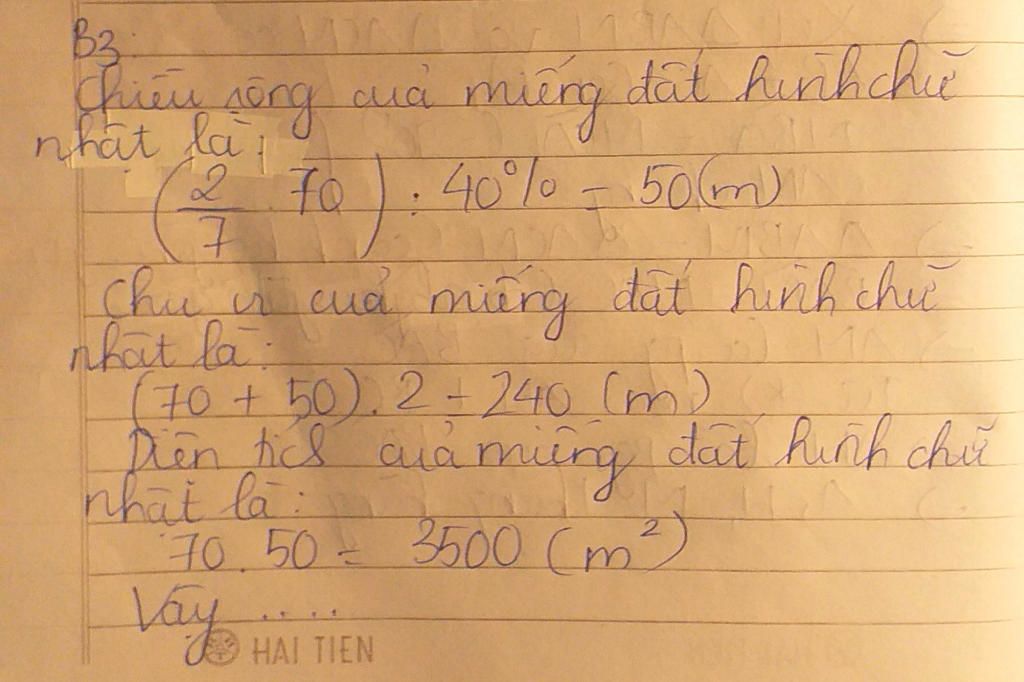 B3:
Chiều rộng của miếng đất hình chữ
nhật là:
(2/7 . 70) : 40% = 50(m)
Chu vi của miếng đất hình chữ
nhật là:
(70 + 50) . 2 = 240 (m)
Diện tích của miếng đất hình chữ
nhật là:
70 . 50 = 3500 (m²)
Vậy .....
HAI TIEN